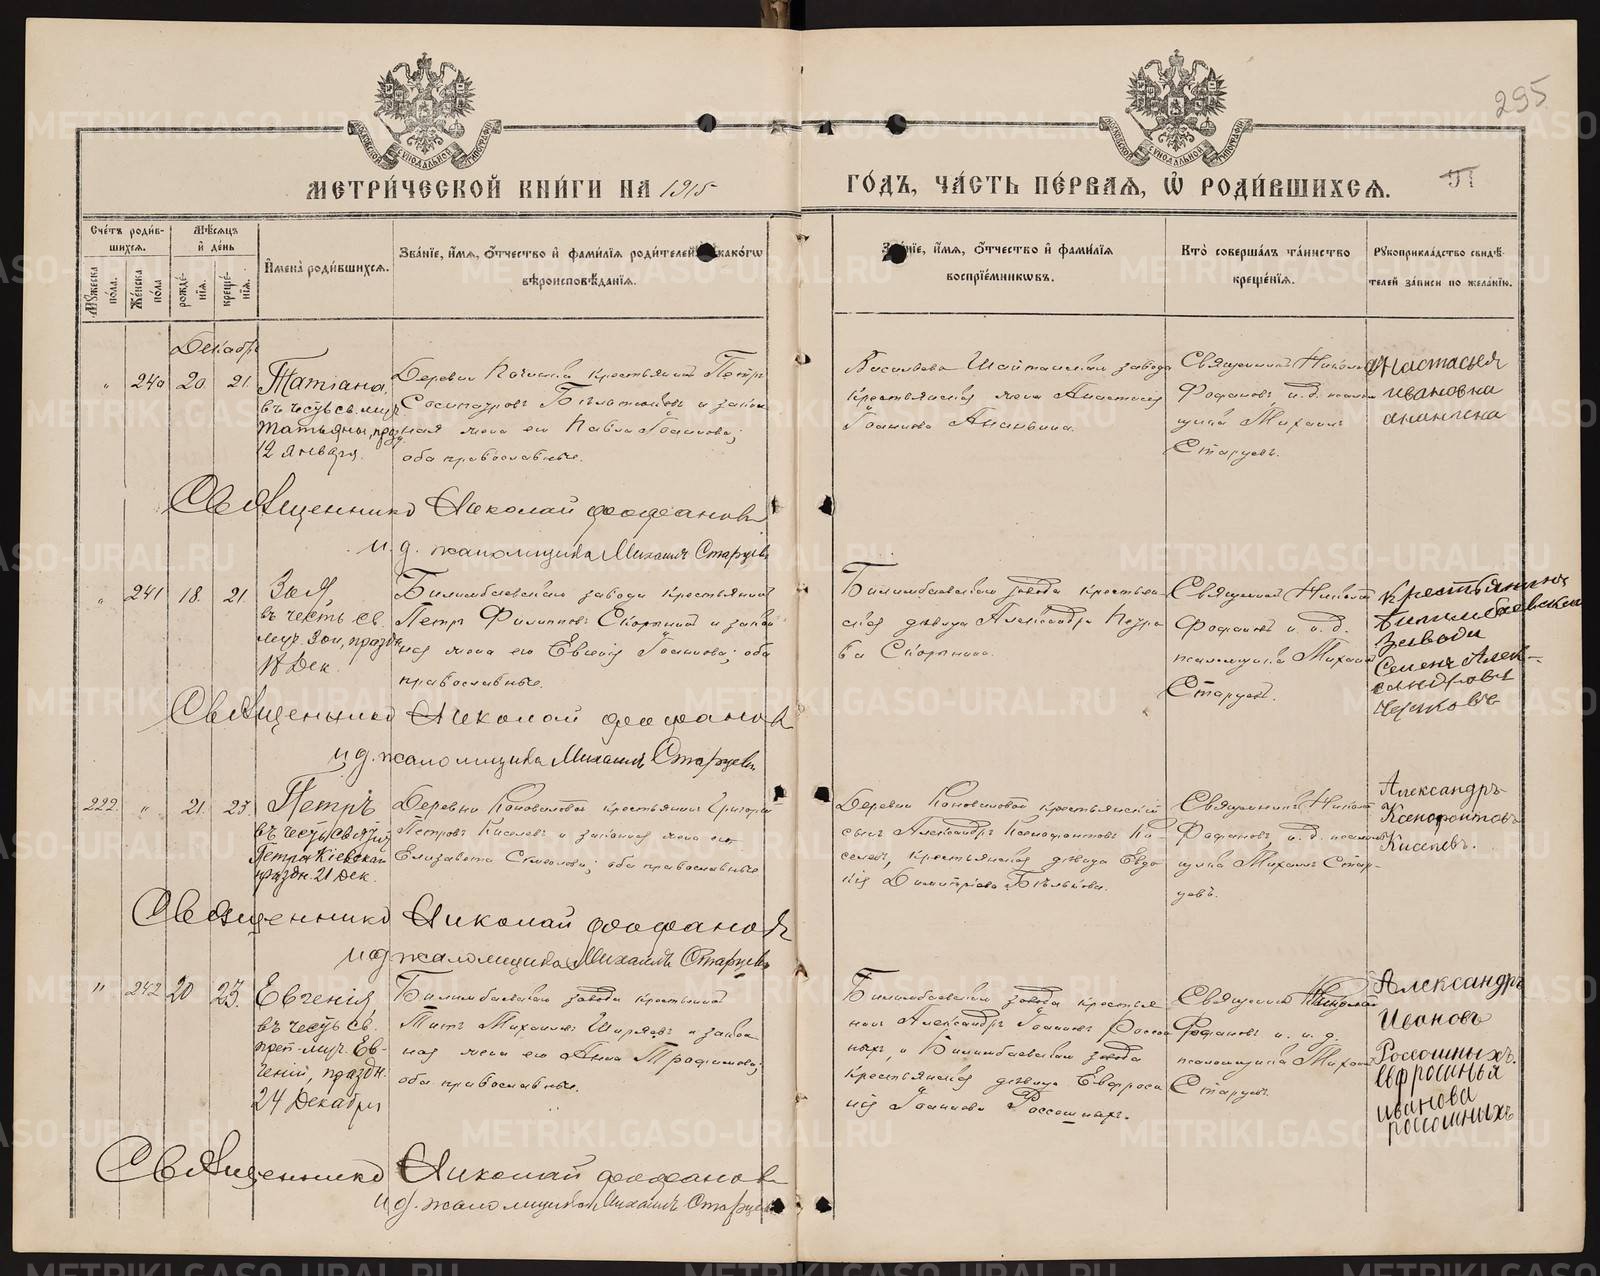 295
МОСКОВСКОЙ СУНОДАЛЬНОЙ ТИПОГРАФІИ
МОСКОВСКОЙ СУНОДАЛЬНОЙ ТИПОГРАФІИ
МЕТРИ́ЧЕСКОЙ КНИ́ГИ НА 1915
ГО́ДЪ, ЧА́СТЬ ПЕ́РВАЯ, Ѡ҆ РОДИ́ВШИХСЯ.
Сче́тъ роди́в-
шихся.
Мѣ́сяцъ
и҆ де́нь
Мꙋ́жеска по́ла.
Же́нска по́ла
рожде́-
нія.
креще́-
нія.
И҆мена̀ роди́вшихся.
Зва́ніе, и҆́мя, ѻ҆́тчество и҆ фами́лія роди́телей како́гѡ
вѣроисповѣ́данія.
и҆́мя, ѻ҆́тчество и҆ фами́лія
воспріе́мниковъ.
Кто̀ соверша́лъ та́инство
креще́нія.
Рꙋкоприкла́дство свидѣ́-
телей за́писи по жела́нію.
Декабрь
" 240 20. 21. Татіана,
въ честь св. муч.
Татьяны, празд.
12 Января.
Деревни крестьянинъ Петръ
Сосипатровъ и закон
ная жена его Павла Іоаннова;
оба православные.
Васильево Шайтанскаго завода
крестьянская жена Анастасія
Іоаннова Ананьина.
Священникъ Николай
Фофановъ, и. д. псалом
щика Михаилъ
Старцевъ.
Анастасья
ивановна
ананина
Священникъ Николай Фофановъ
И. д. псаломщика Михаилъ Старцевъ
" 241 18. 21. Зоя
въ честь св.
муч. Зои, праздн.
18 Дек.
Билимбаевскаго завода крестьянинъ
Петръ Филиповъ Скорынинъ и закон
ная жена его Евгенія Іоаннова; оба
православные.
Билимбаевскаго завода крестьян
ская дѣвица Александра Петро
ва Скорынина.
Священникъ Николай
Фофановъ и и. д.
псаломщика Михаилъ
Старцевъ.
Крестьянинъ
Билимбаевскаго
Завода
Семенъ Алек-
сандровъ
Священникъ Николай Фофановъ
и д. псаломщика Михаилъ Старцевъ
222. " 21. 23. Петръ
въ честь свят.
Петра Кіевскаго
праздн. 21 Дек.
Деревни Коноваловой крестьянинъ Григорій
Петровъ Киселевъ и законная жена его
Елизавета; оба православные
Деревни Коноваловой крестьянскій
сынъ Александръ Ксенофонтовъ Ки-
селевъ, крестьянская дѣвица Евдо
кія Димитріева Бѣлькова.
Священникъ Николай
Фофановъ, и. д. псалом
щика Михаилъ Стар-
цевъ.
Александръ
Ксенофонтовъ
Киселевъ.
Священникъ Николай Фофановъ
и д псаломщика Михаилъ Старцевъ
" 242 20 23. Евгенія
въ честь св.
преп-муч. Ев-
геніи, праздн.
24 Декабря
Билимбаевскаго завода крестьянинъ
Титъ Михаиловъ Ширяевъ и закон
ная жена его Анна Трофимова;
оба православные.
Билимбаевскаго завода крестья
нинъ Александръ Іоанновъ Россош
ныхъ, и Билимбаевскаго завода
крестьянская дѣвица Евфроси
нія Іоаннова Россошныхъ.
Священникъ Николай
Фофановъ и и. д.
псаломщика Михаилъ
Старцевъ.
Александръ
Ивановъ
Россошныхъ.
Ефросинья
иванова
россошныхъ
Священникъ Николай Фофановъ
и д. псаломщика Михаилъ Старцевъ
METRIKI.GASO-URAL.RU